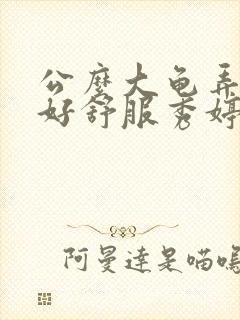 公麼大龟弄
好舒服秀婷
阿曼達是喵嗚